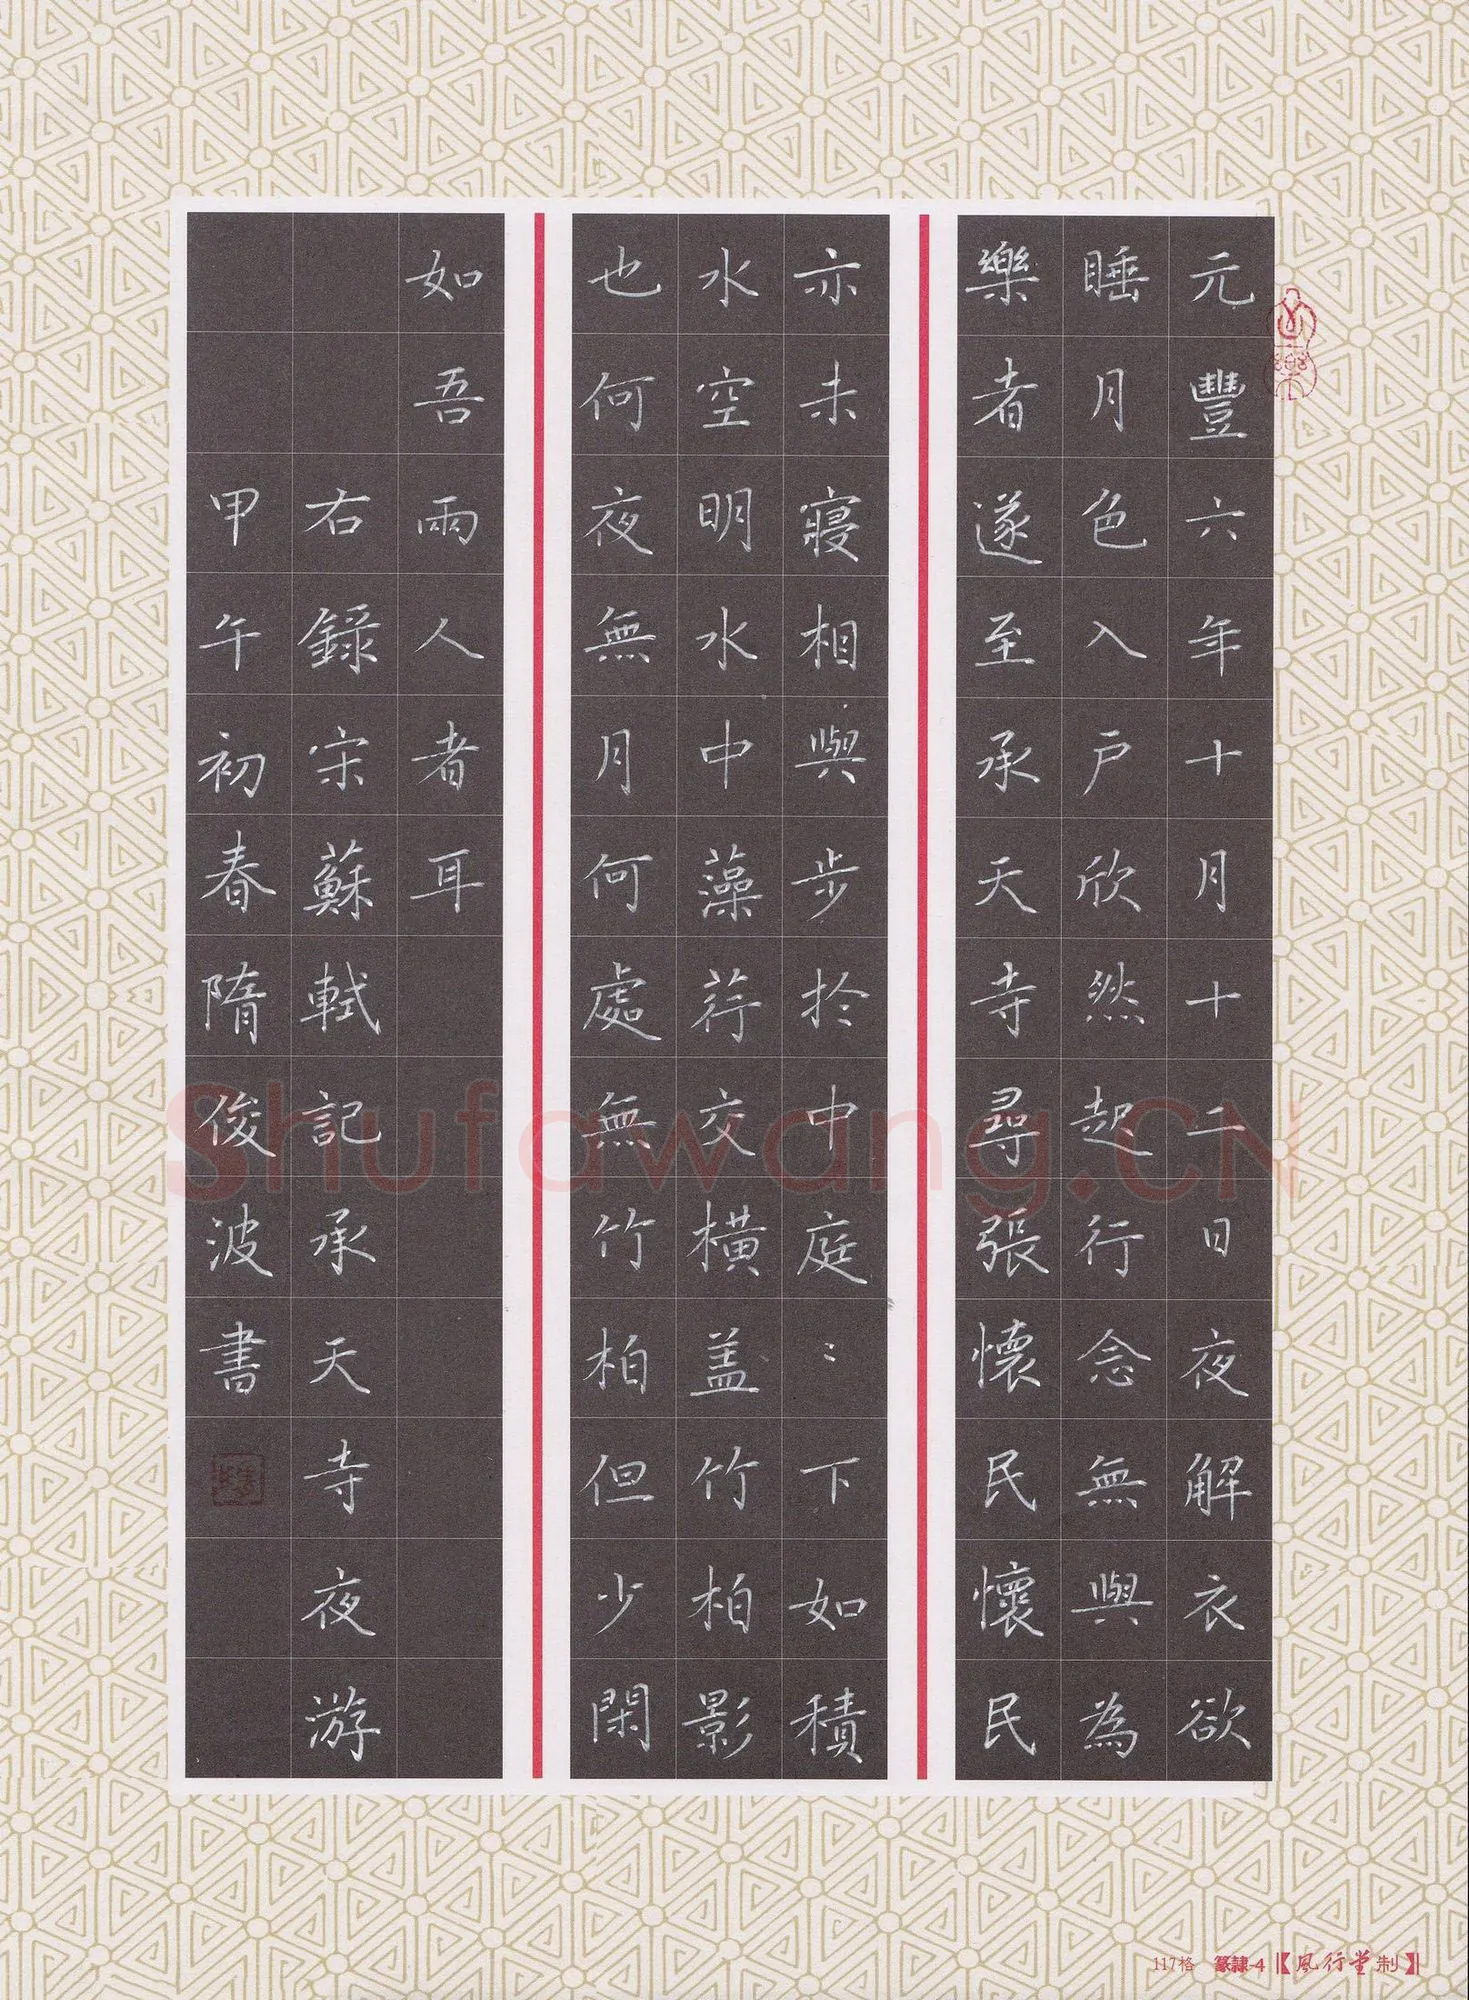 元豐六年十月十二日夜解衣欲
睡月色入戶欣然起行念無與為
樂者遂至承天寺尋張懷民懷民
亦未寢相與步於中庭〻下如積
水空明水中藻荇交橫盖竹柏影
也何夜無月何處無竹柏但少閑
如吾兩人者耳
右錄宋蘇軾記承天寺夜游
甲午初春隋俊波書
Shufawang.CN
117格 篆隸-4【風行堂制】